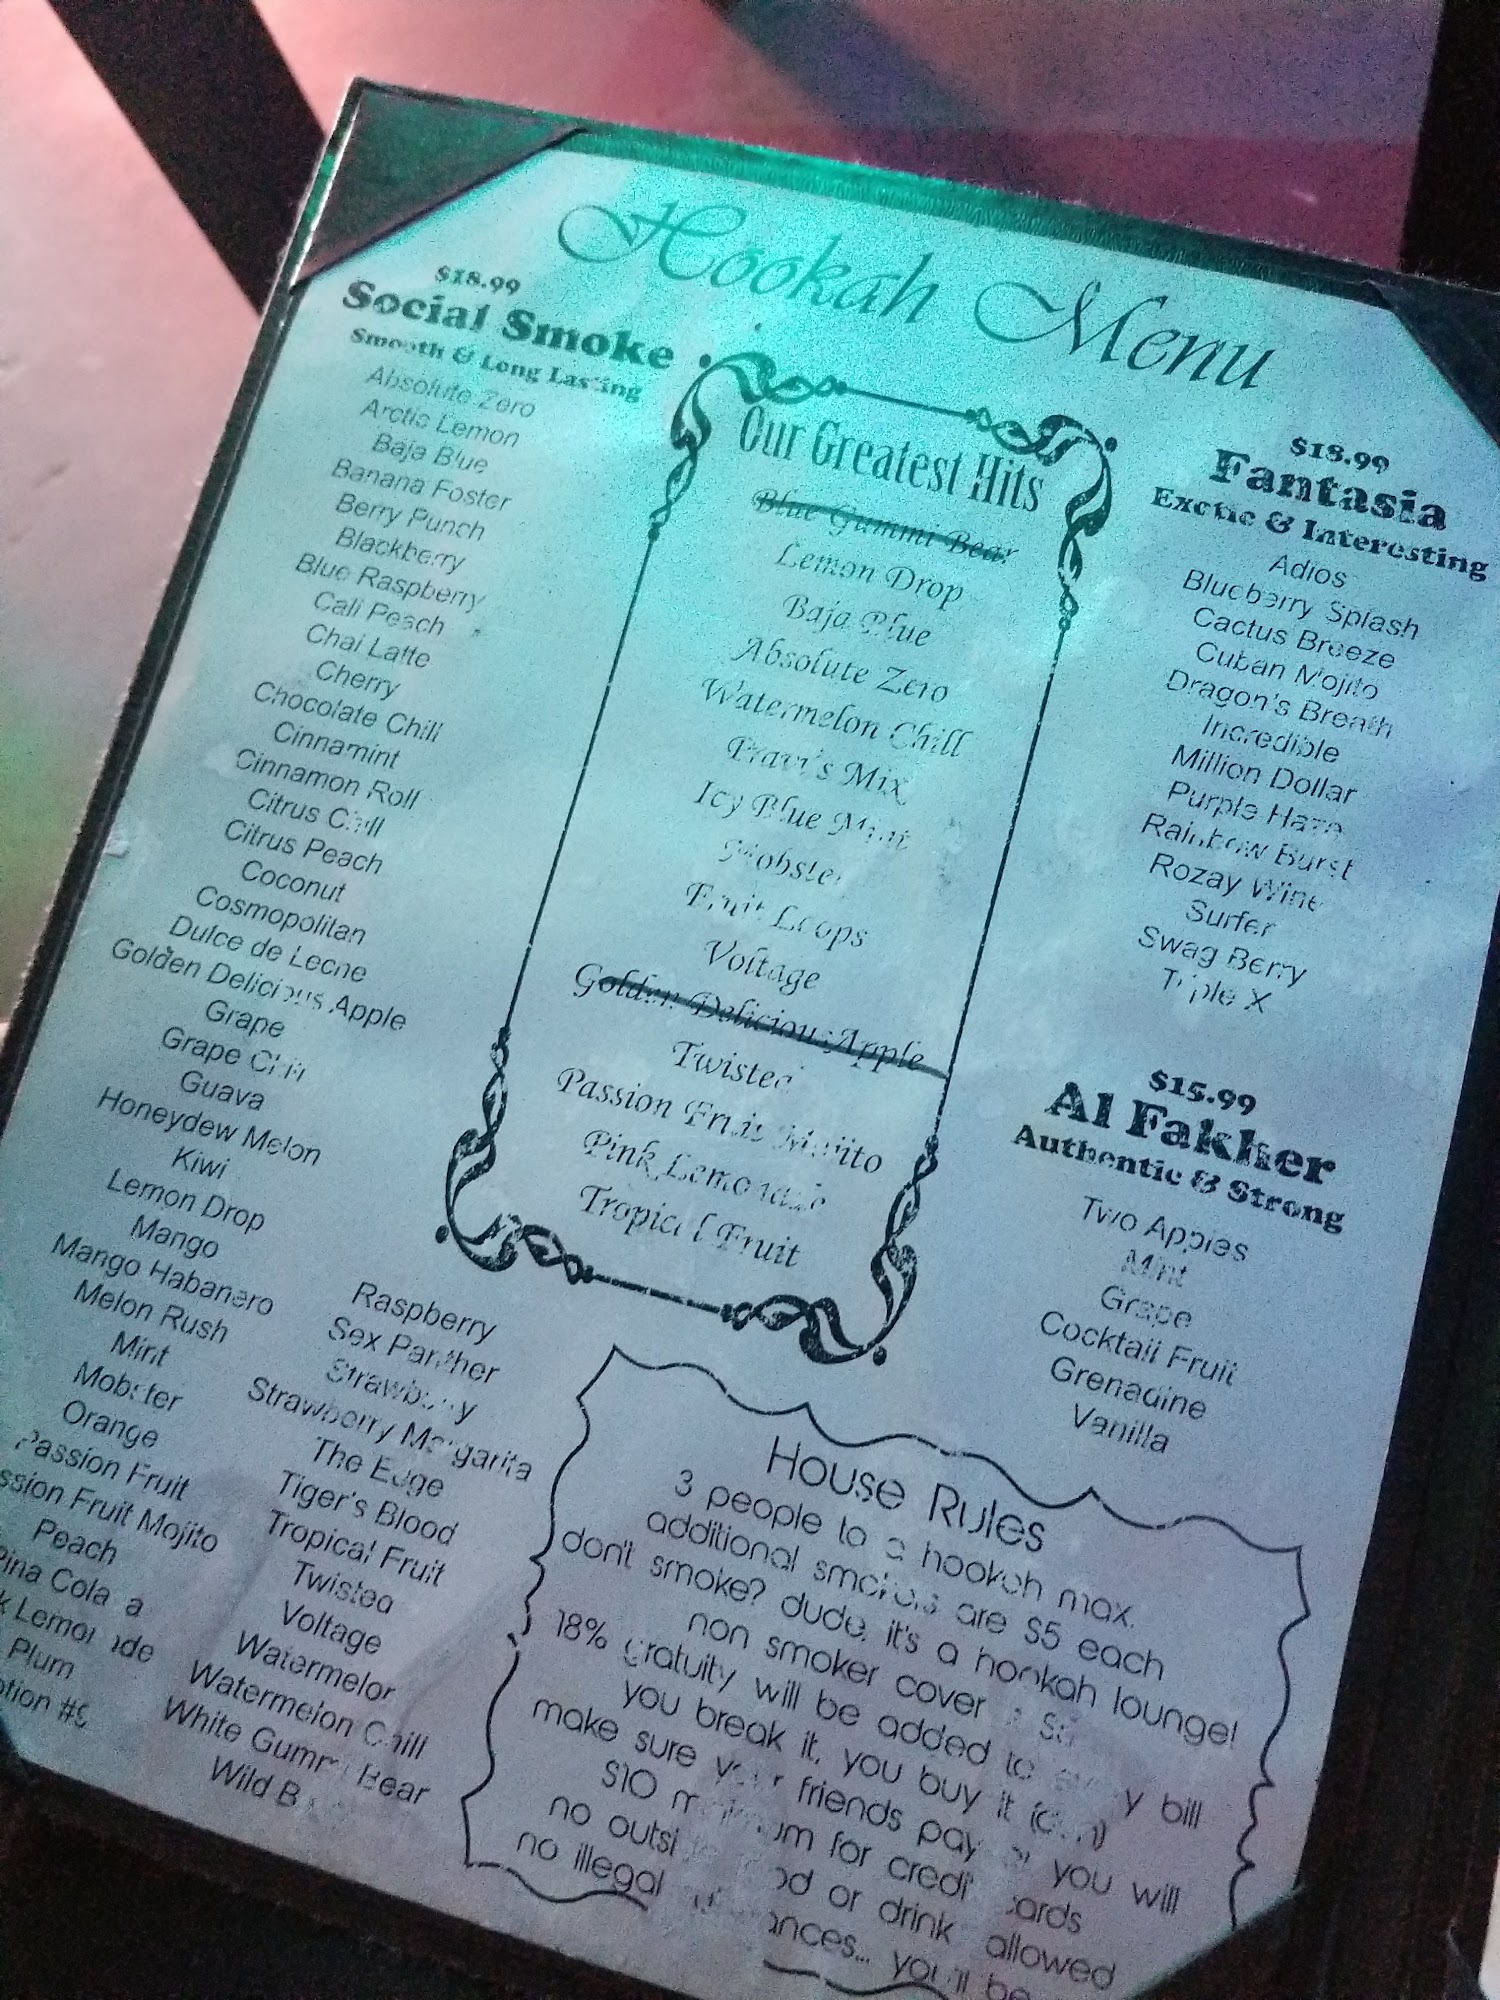 Hookah Menu
$18.99
Social Smoke
Smooth & Long Lasting
Absolute Zero
Arctic Lemon
Baja Blue
Banana Foster
Berry Punch
Blackberry
Blue Raspberry
Cali Peach
Chai Latte
Cherry
Chocolate Chill
Cinnamint
Cinnamon Roll
Citrus Chill
Citrus Peach
Coconut
Cosmopolitan
Dulce de Leche
Golden Delicious Apple
Grape
Grape Chill
Guava
Honeydew Melon
Kiwi
Lemon Drop
Mango
Mango Habanero
Melon Rush
Mint
Mobster
Orange
Passion Fruit
Fruit Mojito
Peach
Pina Colada
Plum
Raspberry
Sex Panther
Strawberry
Strawberry Margarita
The Edge
Tiger's Blood
Tropical Fruit
Twisted
Voltage
Watermelon
Watermelon Chill
White Gummi Bear
Wild
Our Greatest Hits
Blue Gummi Bear
Lemon Drop
Baja Blue
Absolute Zero
Watermelon Chill
Pravi's Mix
Icy Blue Mint
Mobster
Fruit Loops
Voltage
Golden Delicious Apple
Twisted
Passion Fruit Mojito
Pink Lemonade
Tropical Fruit
$18.99
Fantasia
Exotic & Interesting
Adios
Blueberry Splash
Cactus Breeze
Cuban Mojito
Dragon's Breath
Incredible
Million Dollar
Purple Haze
Rainbow Burst
Rozay Wine
Surfer
Swag Berry
Triple X
$15.99
Al Fakher
Authentic & Strong
Two Apples
Mint
Grape
Cocktail Fruit
Grenadine
Vanilla
House Rules
3 people to a hookah max.
additional smokers are $5 each
don't smoke? dude, it's a hookah lounge!
non smoker cover
18% gratuity will be added to every bill
you break it, you buy it
make sure your friends pay or you will
$10 minimum for credit cards
no outside food or drink allowed
no illegal you'll be